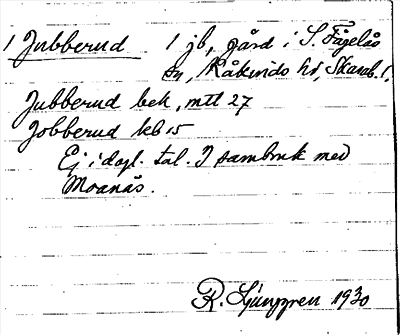 1 Jubberud 1 jb, gård i S. Fågelås
sn, Kåkinds hd, Skarab. l.
Jubberud bek, mtl 27
Jobberud kb 15
Ej i dagl. tal. I sambruk med
Moanäs.
R. Ljunggren 1930